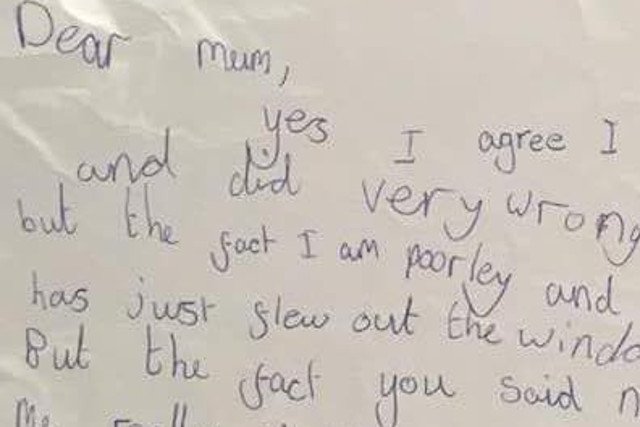 Dear mum,
yes I agree I
and did very wrong
but the fact I am poorley and
has just flew out the windo
But the fact you said n